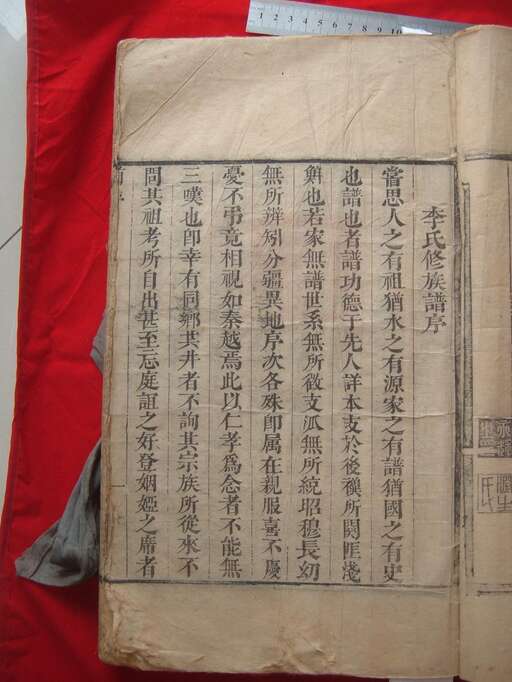 李氏修族譜序
嘗思人之有祖猶水之有源家之有譜猶國之有史
也譜也者譜功德于先人詳本支於後禩所関匪淺
尠也若家無譜世系無所徵支派無所統昭穆長幼
無所辨矧分疆異地序次各殊即属在親服喜不慶
憂不弔竟相視如秦越焉此以仁孝爲念者不能無
三嘆也即幸有同鄉共井者不詢其宗族所從來不
問其祖考所自出甚至忘庭誼之好登姻婭之席者
1 2 3 4 5 6 7 8 9 10